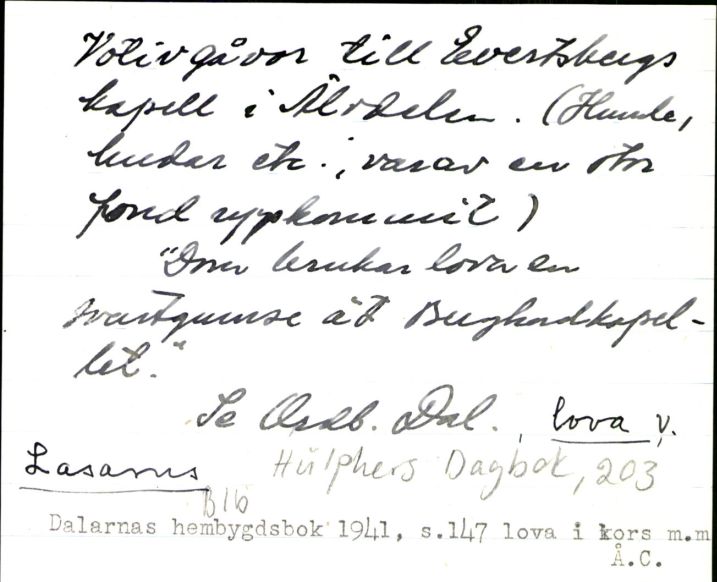 Votivgåvor till Evertsbergs
kapell i Älvdalen. (Humle,
hudar etc., varav en stor
fond uppkommit)
"Dom brukar lova en
svartgumse åt Berghedkapel-
let."
Se Ordb. Dal., lova v.
Lasarus Hülphers Dagbok, 203
B16
Dalarnas hembygdsbok 1941, s.147 lova i kors m.m
Å.C.